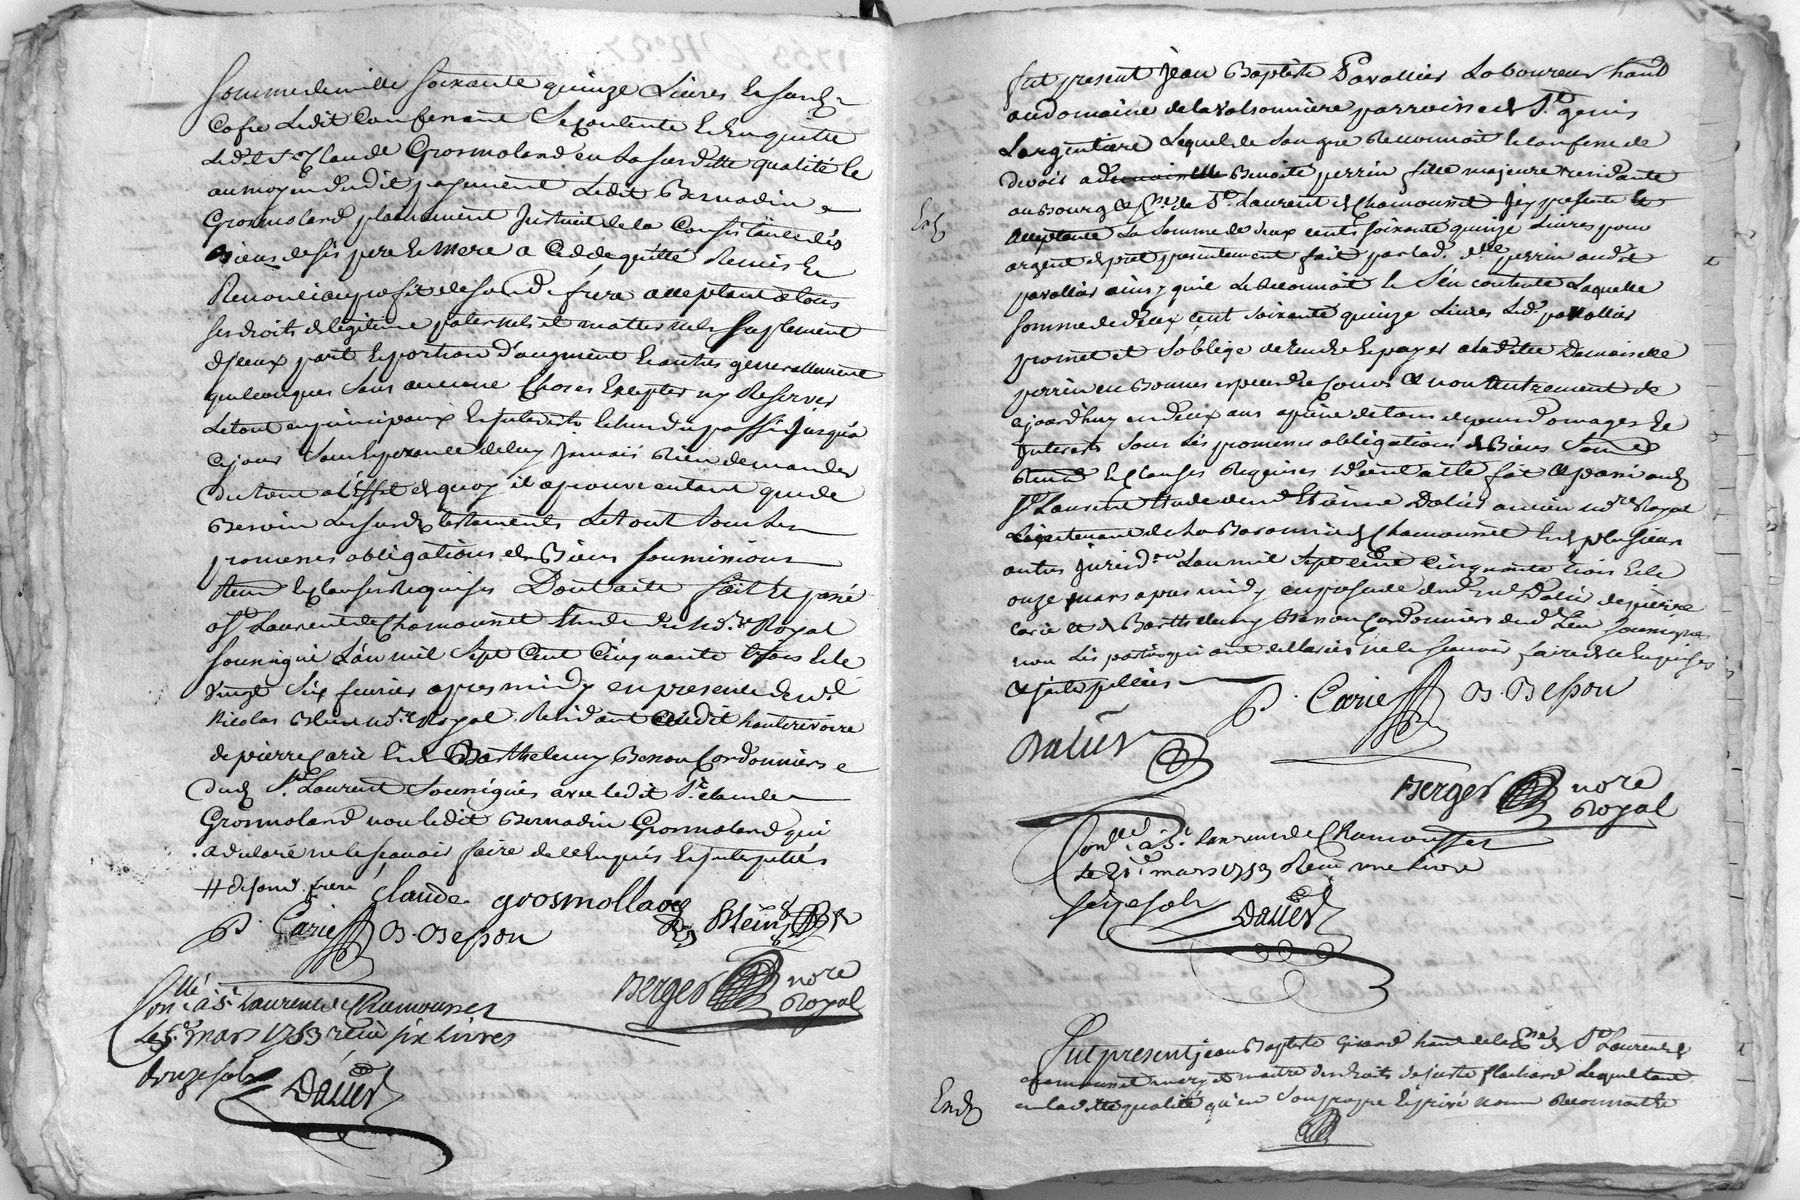 Somme de mille soixante quinze Livres Le surd.
Cofie Ledit Confessant Se contente Et En quitte
Led. Sr. Claude Grosmoland en La surditte qualité Et
au moyen dudit payement Ledit Bernadin
Grosmoland plainement Instruit de la Consistance des
Biens de ses pere Et Mere a Cedde quitté Remis Et
Renoncé au profit de Son d. frere acceptant a tous
ses droits de legitime paternels et matternels Suplement
d'jceux part Et portion d'augment Et autres generallement
quelconques Sans aucune Choses Excepter ny Reserver
Le tout en principaux
ce jour Sans Esperance de luy Jamais Rien demander
Du tout a L'Effet de quoy il aprouve autant que de
Besoin Les surd. testaments Le tout Sous Les
promesses obligations de Biens Soumissions
Renon. Et Clauses Requises Dont acte fait Et passé
a St. Laurent de Chamousset Etude du No.re Royal
Soussigné L'an mil Sept Cent Cinquante trois Et le
vingt Six fevrier apres midy en presence de
Nicolas Blein no.re Royal Residant audit hauterivoire
de pierre Carie Et de Barthelemy Besson Cordonniers
dud. St. Laurent Soussignés avec ledit Sr. Claude
Grosmoland non ledit Bernadin Grosmoland qui
a declaré ne le sçavoir faire de ce Enquis Et
# de son d. frere Claude grosmolland
P. Carie B. Besson Blein
Berger no.re Royal
Con.llé a St. Laurent de Chamousset
Le 5.e mars 1753 reçu six livres
douze sols Dalier
Fut present Jean Baptiste Pavallier Laboureur hant
au domaine de la valsonnière parroisse de St. genis
Largentiere Lequel de Son gre Reconnoit Et Confesse
devoir a demoiselle Benoite perrin fille majeure residante
au Bourg Et p.sse de St. Laurent de Chamousset Jcy presente Et
End.
acceptante La Somme de deux cents soixante quinze Livres pour
argent de pret presentement fait par lad. d.lle perrin aud.
pavallier ainsy qu'il Le Reconnoit Et S'en contente Laquelle
somme de deux cent soixante quinze Livres Led. pavallier
promet et S'oblige de rendre Et payer a laditte Damoiselle
perrin en Bonnes especes de Cours Et non Autrement de
ajourd'huy en deux ans a peine de tous depens domages Et
Interets Sous Les promesses obligations de Biens Soum.
Renon. Et Clauses Requises Dont acte fait Et passé aud.
St. Laurent Etude de Etienne Dalier ancien no.re Royal
Lieutenant de La Baronnie de Chamousset Et de plusieurs
autres Jurisd.on L'an mil Sept Cent Cinquante trois Et le
onze mars apres midy en presence dud. Dalier de pierre
Carie et de Barthelemy Besson Cordonniers dud. Lieu Soussignés
non Les parties qui ont declarées ne le sçavoir faire de ce Enquises
P. Carie B. Besson
Dalier
Berger no.re Royal
Con.llé a St. Laurent de Chamousset
Le 21.e mars 1753 Reçu une livre
seize sols Dalier
Fut present jean Baptiste Girard hant de la p.sse de St. Laurent de
chamousset mary Et maitre des droits de juste flachard Lequel tant
End.
en laditte qualité qu'en Son propre Et privé nom Reconnoit Et